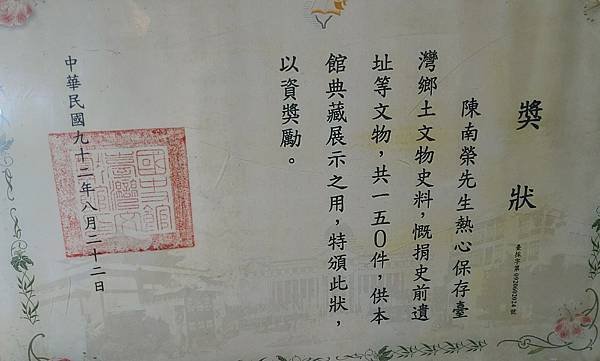 獎狀
臺採字第0920602024號
陳南榮先生熱心保存臺
灣鄉土文物史料，慨捐史前遺
址等文物，共一五０件，供本
館典藏展示之用，特頒此狀，
以資獎勵。
中華民國九十二年八月二十二日